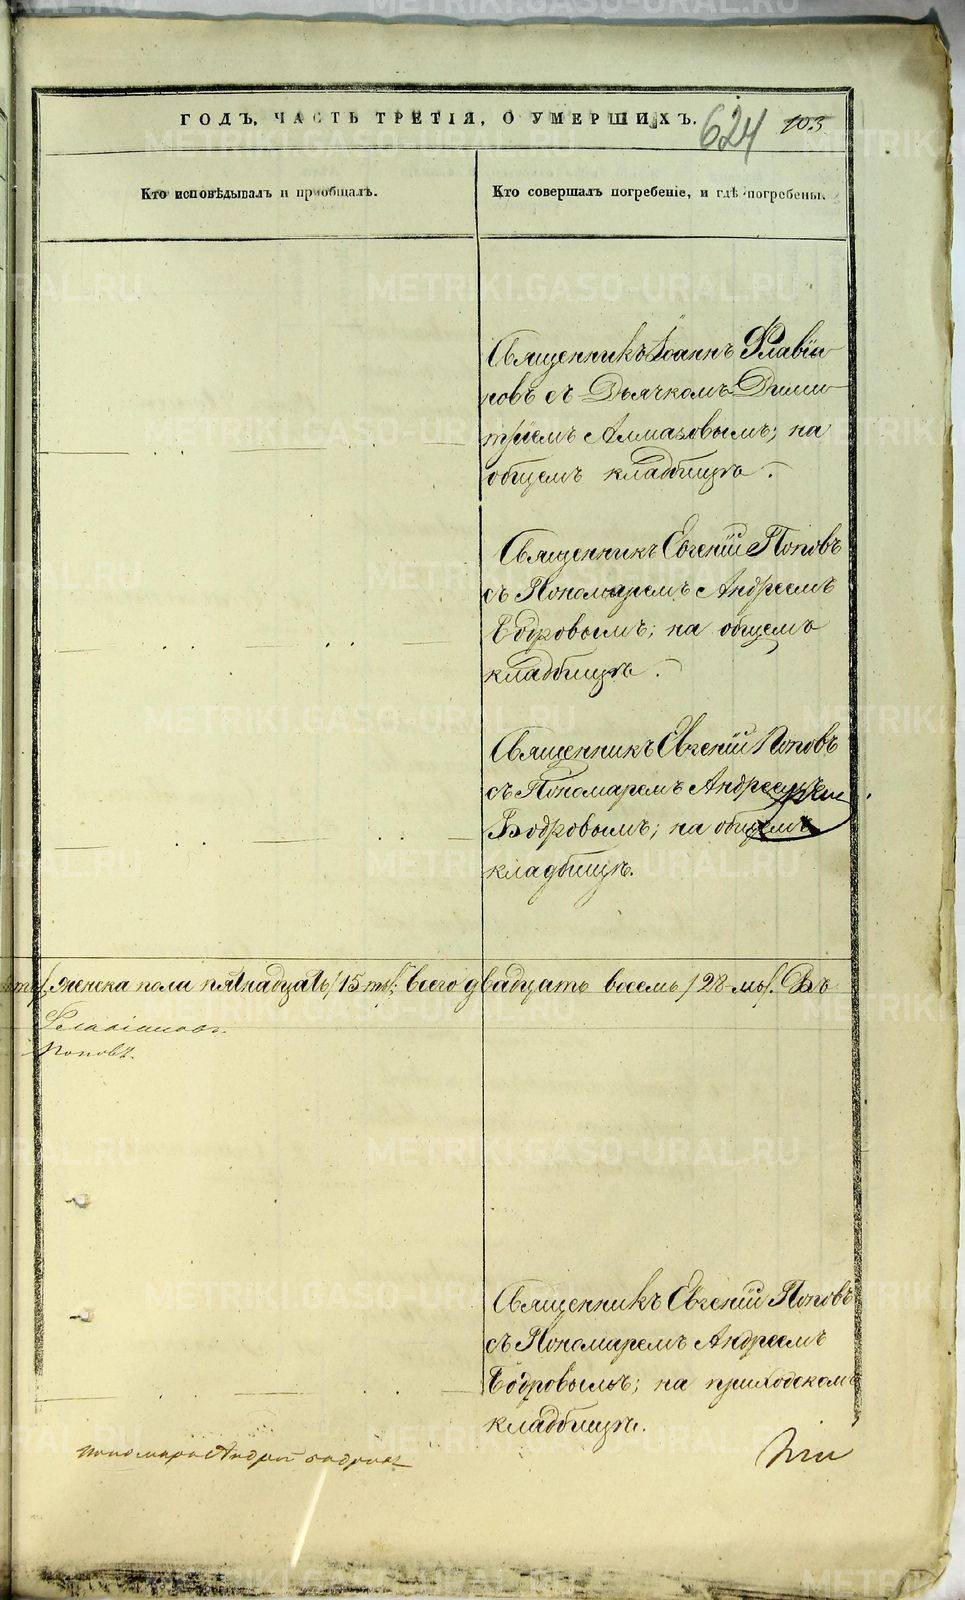 ГОДЪ, ЧАСТЬ ТРЕТІЯ, О УМЕРШИХЪ.
624 103
Кто исповѣдывалъ и пріобщалъ.
Кто совершалъ погребеніе, и гдѣ погребены.
Священникъ Іоаннъ Флавіа
новъ съ Дьячкомъ Дими
тріемъ Алмазовымъ; на
общемъ кладбищѣ.
Священникъ Евгеній Поповъ
съ Пономаремъ Андреемъ
Бодровымъ; на общемъ
кладбищѣ.
Священникъ Евгеній Поповъ
съ Пономаремъ Андреемъ
Бодровымъ; на общемъ
кладбищѣ.
женска пола пятнадцать /15ть/; всего двадцать восемь /28мь/. Въ
Флавіановъ.
Поповъ.
Священникъ Евгеній Поповъ
съ Пономаремъ Андреемъ
Бодровымъ; на приходскомъ
кладбищѣ.
Пономарь Андрей Бодровъ
METRIKI.GASO-URAL.RU